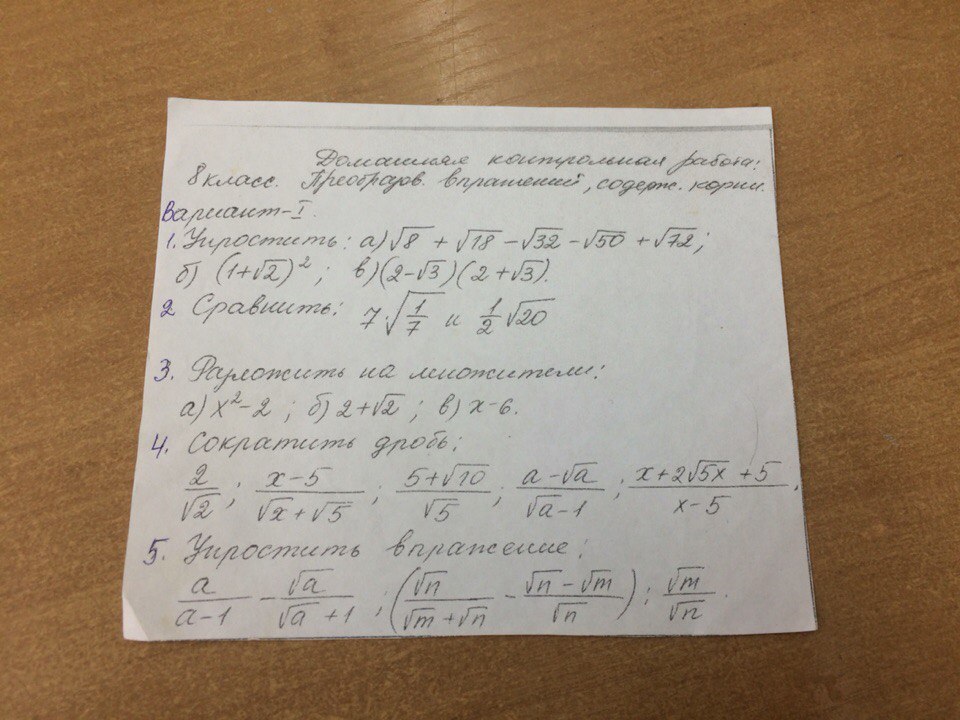 Домашняя контрольная работа:
8 класс. Преобразов. выражений, содерж. корни.
Вариант-I.
1. Упростить: а) √8 + √18 - √32 - √50 + √72;
б) (1+√2)²; в) (2-√3)(2+√3).
2 Сравнить: 7√(1/7) и 1/2 √20
3. Разложить на множители:
а) x²-2; б) 2+√2; в) x-6.
4. Сократить дробь:
2/√2; (x-5)/(√x+√5); (5+√10)/√5; (a-√a)/(√a-1); (x+2√5x+5)/(x-5).
5. Упростить выражение:
a/(a-1) - √a/(√a+1); (√n/(√m+√n) - (√n-√m)/√n) : √m/√n.